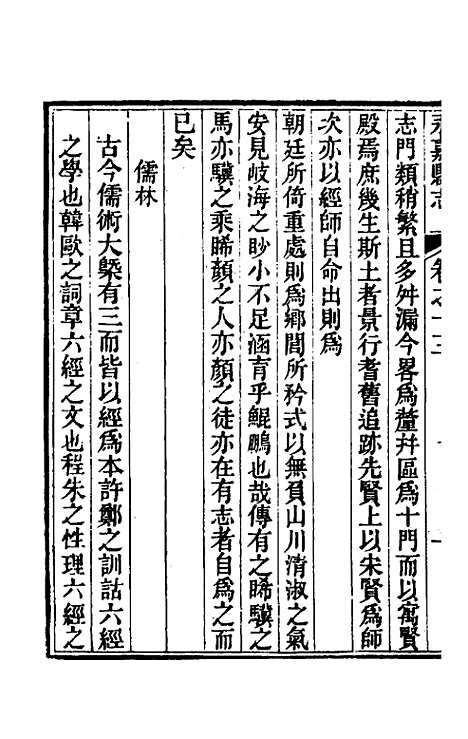 永嘉縣志 卷之十三 一
志門類稍繁且多舛漏今畧爲釐幷區爲十門而以寓賢
殿焉庶幾生斯土者景行耆舊追跡先賢上以宋賢爲師
次亦以經師自命出則爲
朝廷所倚重處則爲鄉閭所矜式以無負山川清淑之氣
安見岐海之眇小不足涵育乎鯤鵬也哉傳有之睎驥之
馬亦驥之乘睎顏之人亦顏之徒亦在有志者自爲之而
已矣
儒林
古今儒術大槩有三而皆以經爲本許鄭之訓詁六經
之學也韓歐之詞章六經之文也程朱之性理六經之